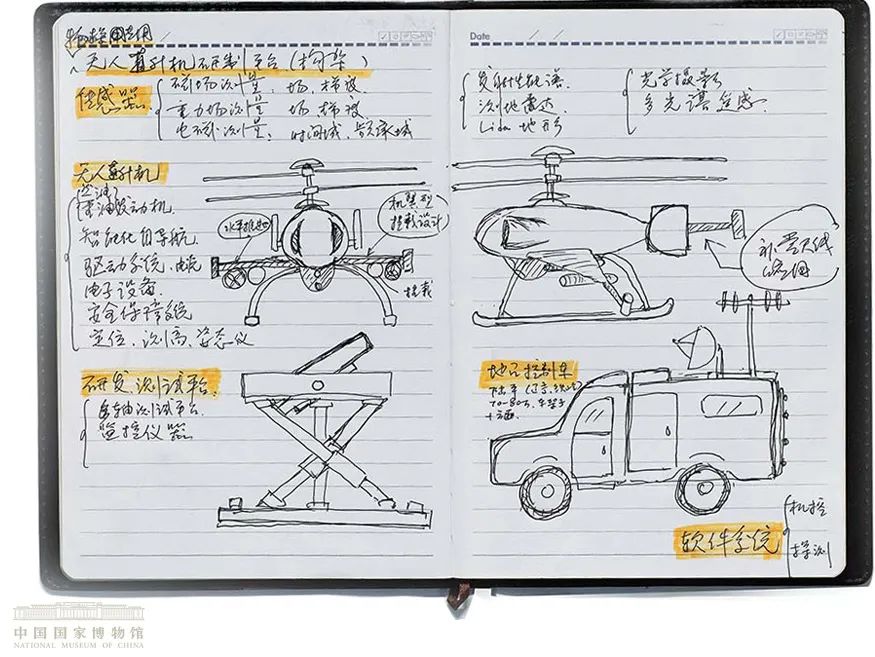 无人直升机研制平台(构架)
传感器
磁场测量, 场, 梯度
重力场测量 场, 梯度
电磁测量, 时间域, 频率域
无人直升机
重油发动机
智能化自导航
驱动系统, 电流
电子设备
安全保障系统
定位, 测高, 姿态仪
机翼型
挂载设计
挂载
研发, 测试平台
测试平台
监控仪器
Date
放射性能谱
测地雷达
Lida 地形
光学摄影
多光谱遥感
天线
地面控制车
70-80万
软件系统
机控
中国国家博物馆
NATIONAL MUSEUM OF CHINA